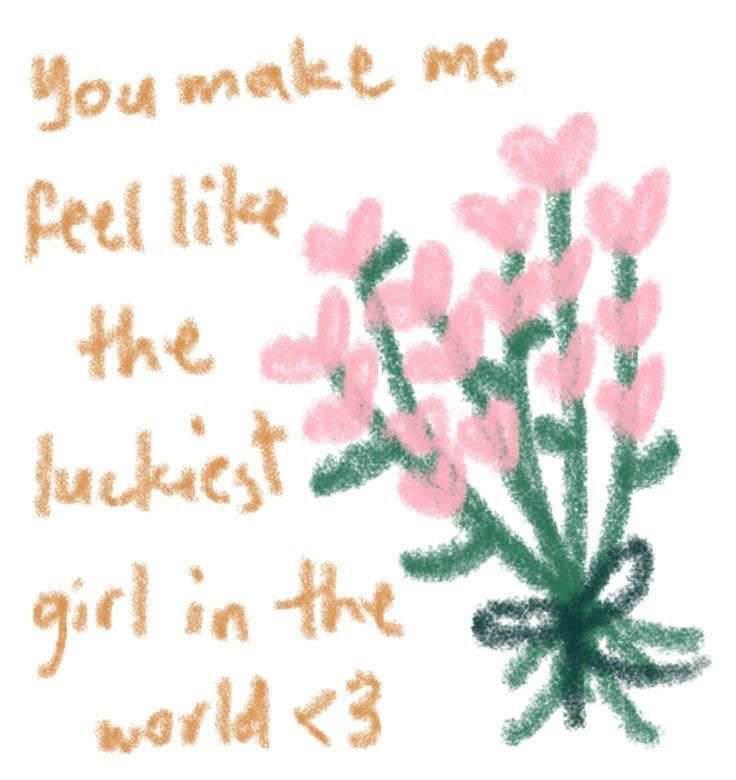 You make me
feel like
the
luckiest
girl in the
world <3